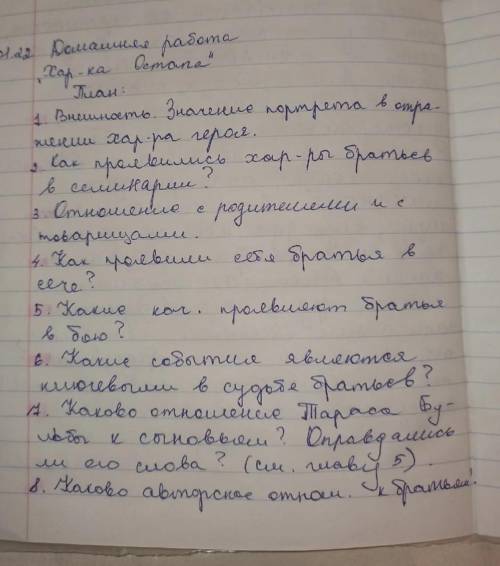 01.22 Домашняя работа
„Хар-ка Остапа“
План:
1. Внешность. Значение портрета в отра-
жении хар-ра героя.
2. Как проявились хар-ры братьев
в семинарии?
3. Отношение с родителями и с
товарищами.
4. Как проявили себя братья в
сече?
5. Какие кач. проявляют братья
в бою?
6. Какие события являются
ключевыми в судьбе братьев?
7. Каково отношение Тараса Бу-
льбы к сыновьям? Оправдались
ли его слова? (см. главу 5).
8. Каково авторское отнош. к братьям?